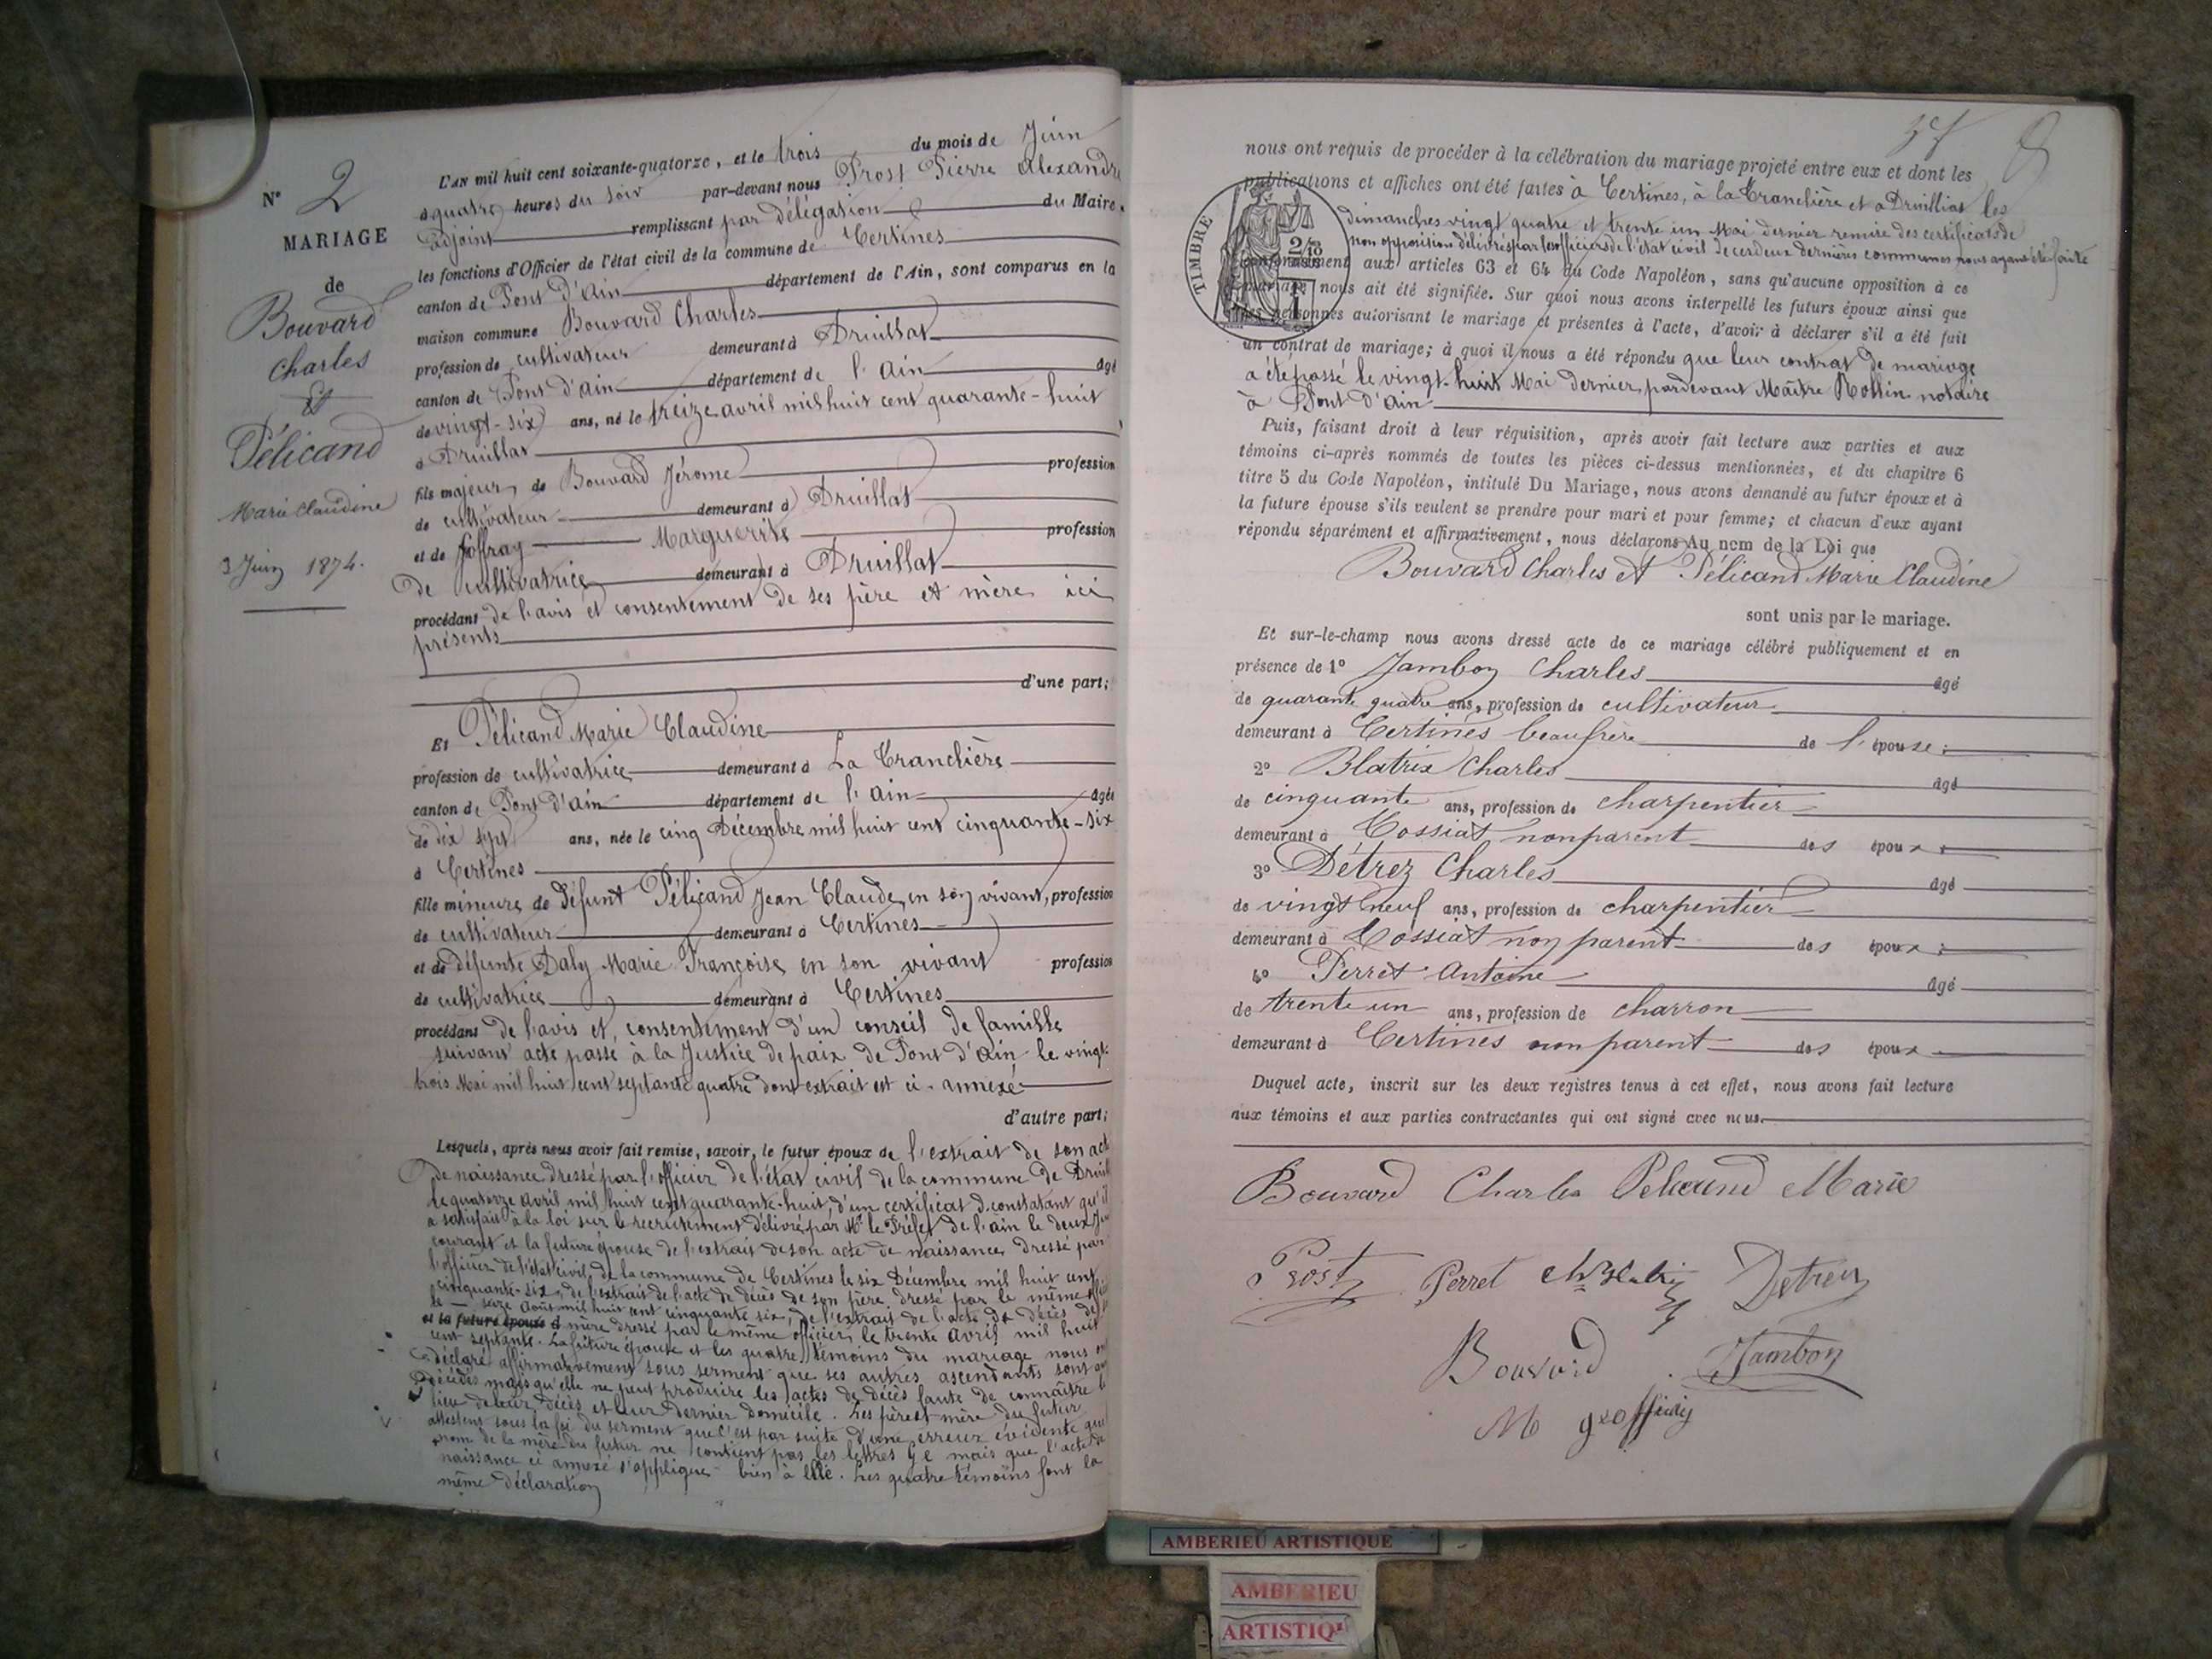 N° 2
MARIAGE
de
Bouvard
Charles
Et
Pélicand
Marie Claudine
3 Juin 1874.
L'AN mil huit cent soixante-quatorze, et le trois du mois de Juin
à quatre heures du soir par-devant nous Prost Pierre Alexandre
adjoint remplissant par délégation du Maire
les fonctions d'Officier de l'état civil de la commune de Certines
canton de Pont d'Ain département de l'Ain, sont comparus en la
maison commune Bouvard Charles
profession de cultivateur demeurant à Druillat
canton de Pont d'ain département de l'ain âgé
de vingt-six ans, né le treize avril mil huit cent quarante-huit
à Druillat
fils majeur, de Bouvard Jérome profession
de cultivateur demeurant à Druillat
et de Joffray Marguerite profession
De cultivatrice demeurant à Druillat
procédant de l'avis et consentement de ses père et mère ici
présents
d'une part;
Et Pélicand Marie Claudine
profession de cultivatrice demeurant à La Tranclière
canton de Pont d'ain département de l'ain âgée
de dix sept ans, née le cinq Décembre mil huit cent cinquante-six
à Certines
fille mineure, de défunt Pélicand Jean Claude, en son vivant, profession
de cultivateur demeurant à Certines
et de défunte Daly Marie Françoise en son vivant profession
de cultivatrice demeurant à Certines
procédant de l'avis et consentement d'un conseil de famille
suivant acte passé à la Justice de paix de Pont d'ain le vingt-
trois Mai mil huit cent septante quatre dont extrait est ci-annexé
d'autre part;
Lesquels, après nous avoir fait remise, savoir, le futur époux de l'extrait de son acte
De naissance dressé par l'officier de l'état civil de la commune de Druil
le quatorze avril mil huit cent quarante-huit, d'un certificat constatant qu'il
a satisfait à la loi sur le recrutement délivré par Mr le Préfet de l'ain le deux
courant et la future épouse de l'extrait de son acte de naissance dressé par
l'officier de l'état civil de la commune de Certines le six Décembre mil huit cent
cinquante-six, de l'extrait de l'acte de décès de son père dressé par le même
le seize Août mil huit cent cinquante six, de l'extrait de l'acte de décès de
et la future épouse d mère dressé par le même officier, le trente avril mil huit
cent septante. La future épouse et les quatre témoins du mariage nous ont
déclaré affirmativement sous serment que ses autres ascendants sont
décédés mais qu'elle ne peut produire les actes de décès faute de connaître le
lieu de leur décès et leur dernier domicile. Les père et mère du futur
attestent sous la foi du serment que c'est par suite d'une erreur évidente que
nom de la mère du futur ne contient pas les lettres g e mais que l'acte de
naissance ci annexé s'applique bien à elle. Les quatre témoins font la
même déclaration
37 8
nous ont requis de procéder à la célébration du mariage projeté entre eux et dont les
publications et affiches ont été faites à Certines, à la Tranclière et à Druillat les
dimanches vingt quatre et trente un Mai dernier remise des certificats de
non opposition délivrés par les officiers de l'état civil de ces deux dernières communes nous ayant été faite
TIMBRE
conformément aux articles 63 et 64 du Code Napoléon, sans qu'aucune opposition à ce
mariage nous ait été signifiée. Sur quoi nous avons interpellé les futurs époux ainsi que
les personnes autorisant le mariage et présentes à l'acte, d'avoir à déclarer s'il a été fait
un contrat de mariage; à quoi il nous a été répondu que leur contrat de mariage
a été passé le vingt-huit Mai dernier, pardevant Maître Rollin notaire
à Pont d'ain
Puis, faisant droit à leur réquisition, après avoir fait lecture aux parties et aux
témoins ci-après nommés de toutes les pièces ci-dessus mentionnées, et du chapitre 6
titre 5 du Code Napoléon, intitulé Du Mariage, nous avons demandé au futur époux et à
la future épouse s'ils veulent se prendre pour mari et pour femme; et chacun d'eux ayant
répondu séparément et affirmativement, nous déclarons Au nom de la Loi que
Bouvard Charles et Pélicand Marie Claudine
sont unis par le mariage.
Et sur-le-champ nous avons dressé acte de ce mariage célébré publiquement et en
présence de 1° Jambon Charles âgé
de quarante quatre ans, profession de cultivateur
demeurant à Certines beaufrère de l'épouse;
2° Blatrix Charles âgé
de cinquante ans, profession de charpentier
demeurant à Tossiat non parent des époux;
3° Détrez Charles âgé
de vingt neuf ans, profession de charpentier
demeurant à Tossiat non parent des époux;
4° Perret Antoine âgé
de trente un ans, profession de charron
demeurant à Certines non parent des époux
Duquel acte, inscrit sur les deux registres tenus à cet effet, nous avons fait lecture
aux témoins et aux parties contractantes qui ont signé avec nous.
Bouvard Charles Pelicand Marie
Prost Perret Ch Blatrix Detrez
Bouvard Jambon
M geoffray
AMBERIEU ARTISTIQUE
AMBERIEU
ARTISTIQ